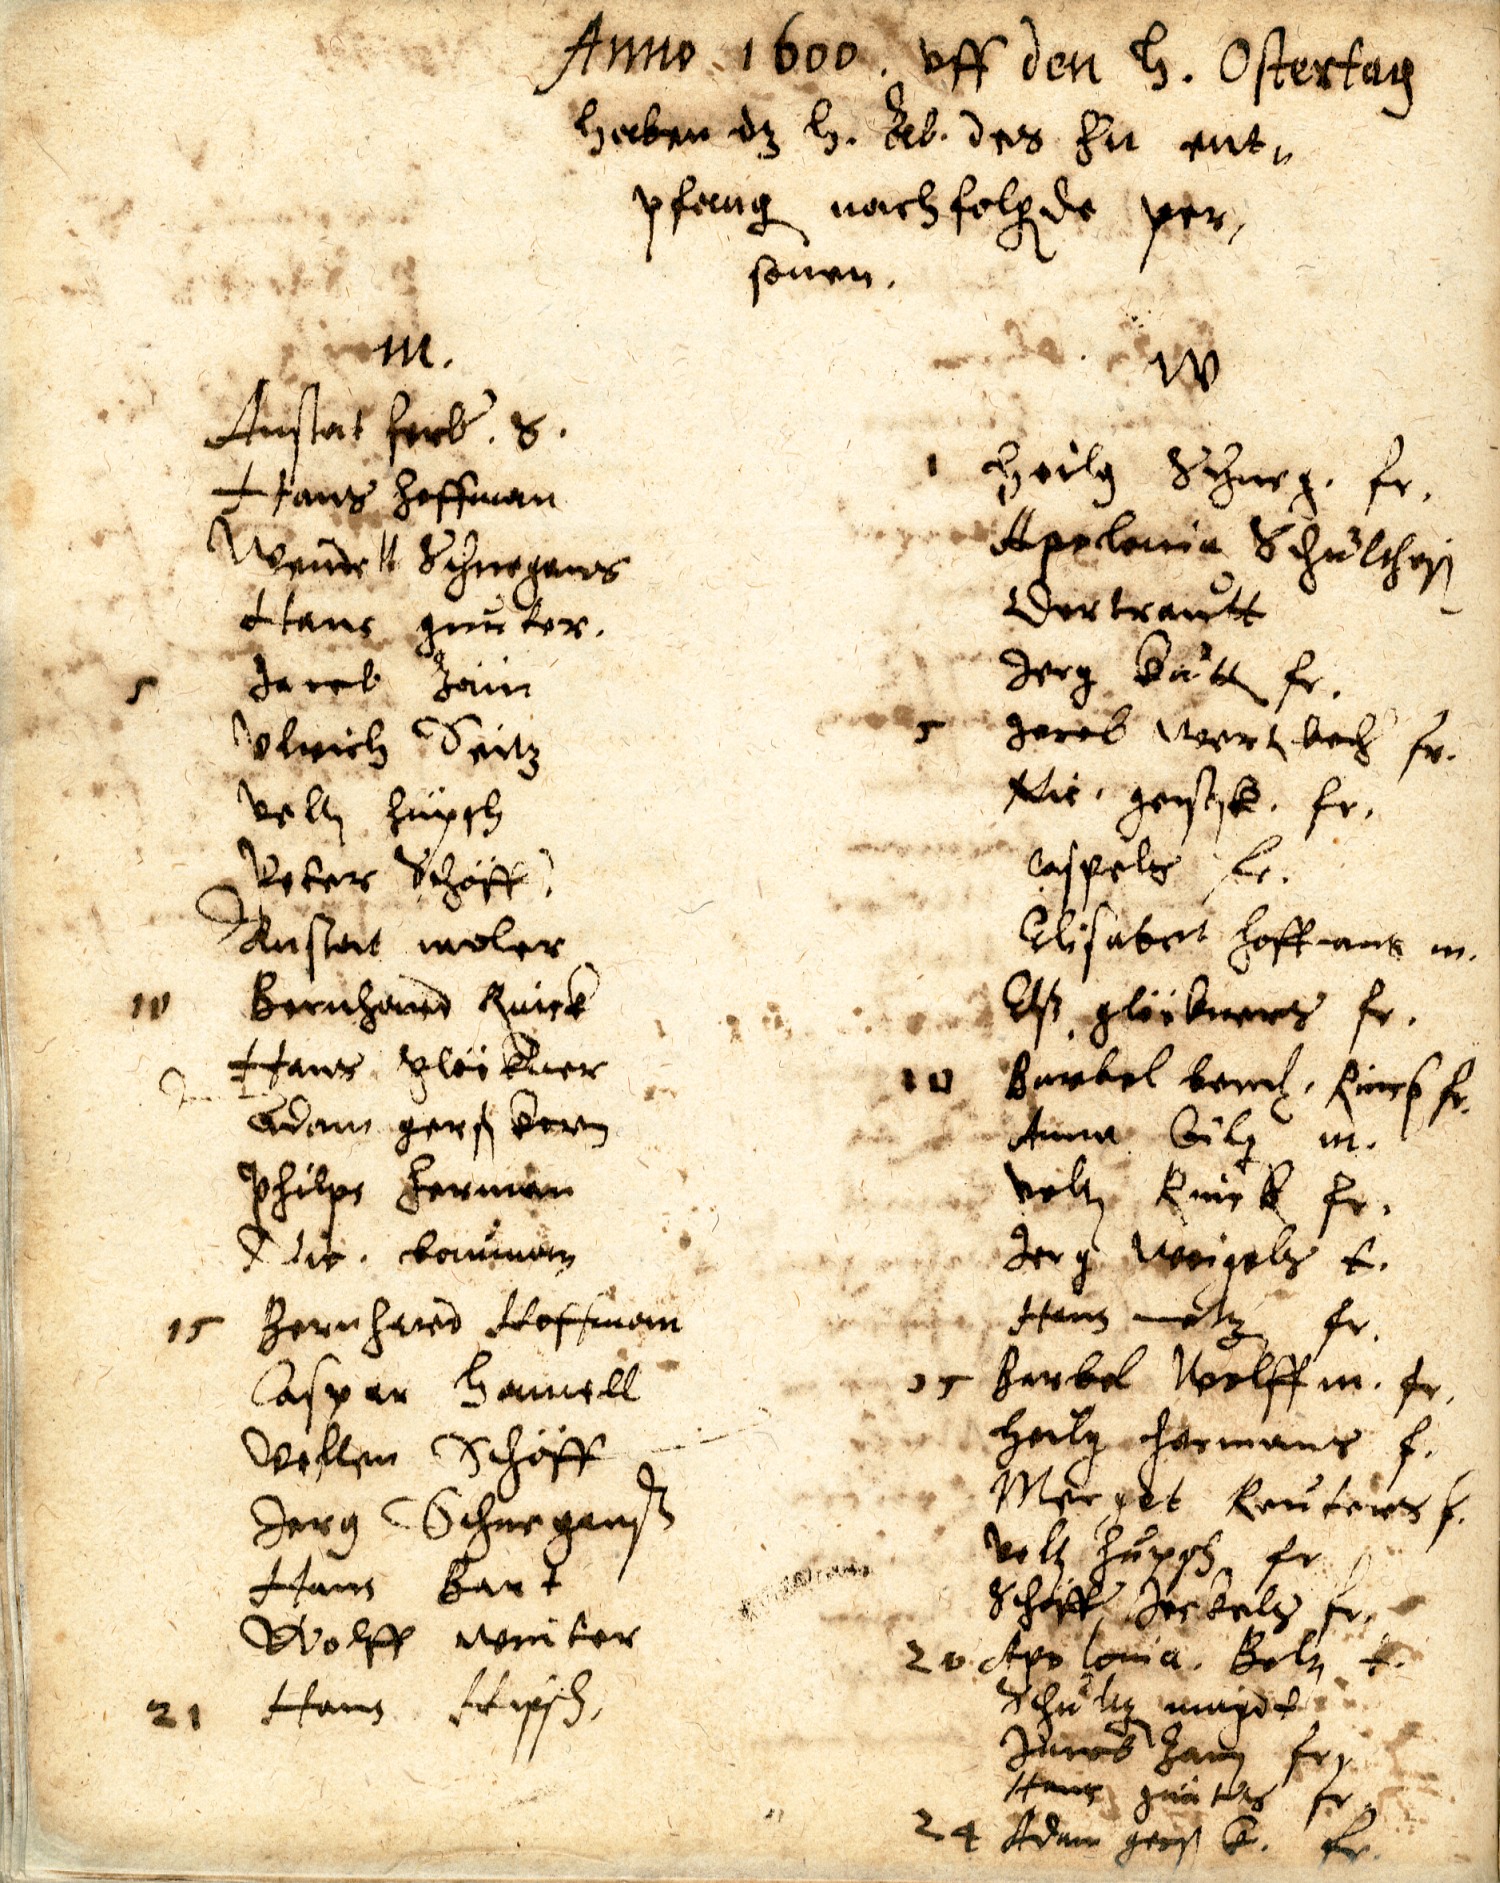 Anno 1600. vff den h. Ostertag
haben dz h. des Hn ent„
pfang nachfolgde per,
sonen.
M.
Anstat ferb. S.
Hans hoffman
Wendell Schnegans
Hans günter.
5 Jacob Zäin
Vlrich Seitz
Veltn hüpsch
Peter Schöff.
Anstat moler
10 Bernhard Rinck
Hans glöckner
Adam gerskorn
Philips herman
Nic. bauman
15 Bernhard Hoffman
Caspar Hamell
Velten Schöff
Jerg Schneganß
Hans Bart
Wolff winter
21 Hans Hipsch,
W
1 Heilg Schneg. fr.
Apolonia Schultheß
Gertrautt
Jerg fr.
5 Jacob fr.
Nic. fr.
Caspels fr.
Elisabet hoffmans m.
Elß. glöckners fr.
10 Barbel bernh. Rincks fr.
Anna m.
Veltn Rinck fr.
Jerg Weigels t.
Hans metz fr.
15 Barbel Wolff m. fr.
Heilg hermans f.
Merget Reuters f.
Veltn hüpsch fr
Schöff Jeckels fr.
20 Apolonia. Beltz t.
Schultz magdt
Jacob Zain fr.
Hans günters fr.
24 Adam gersk. fr.